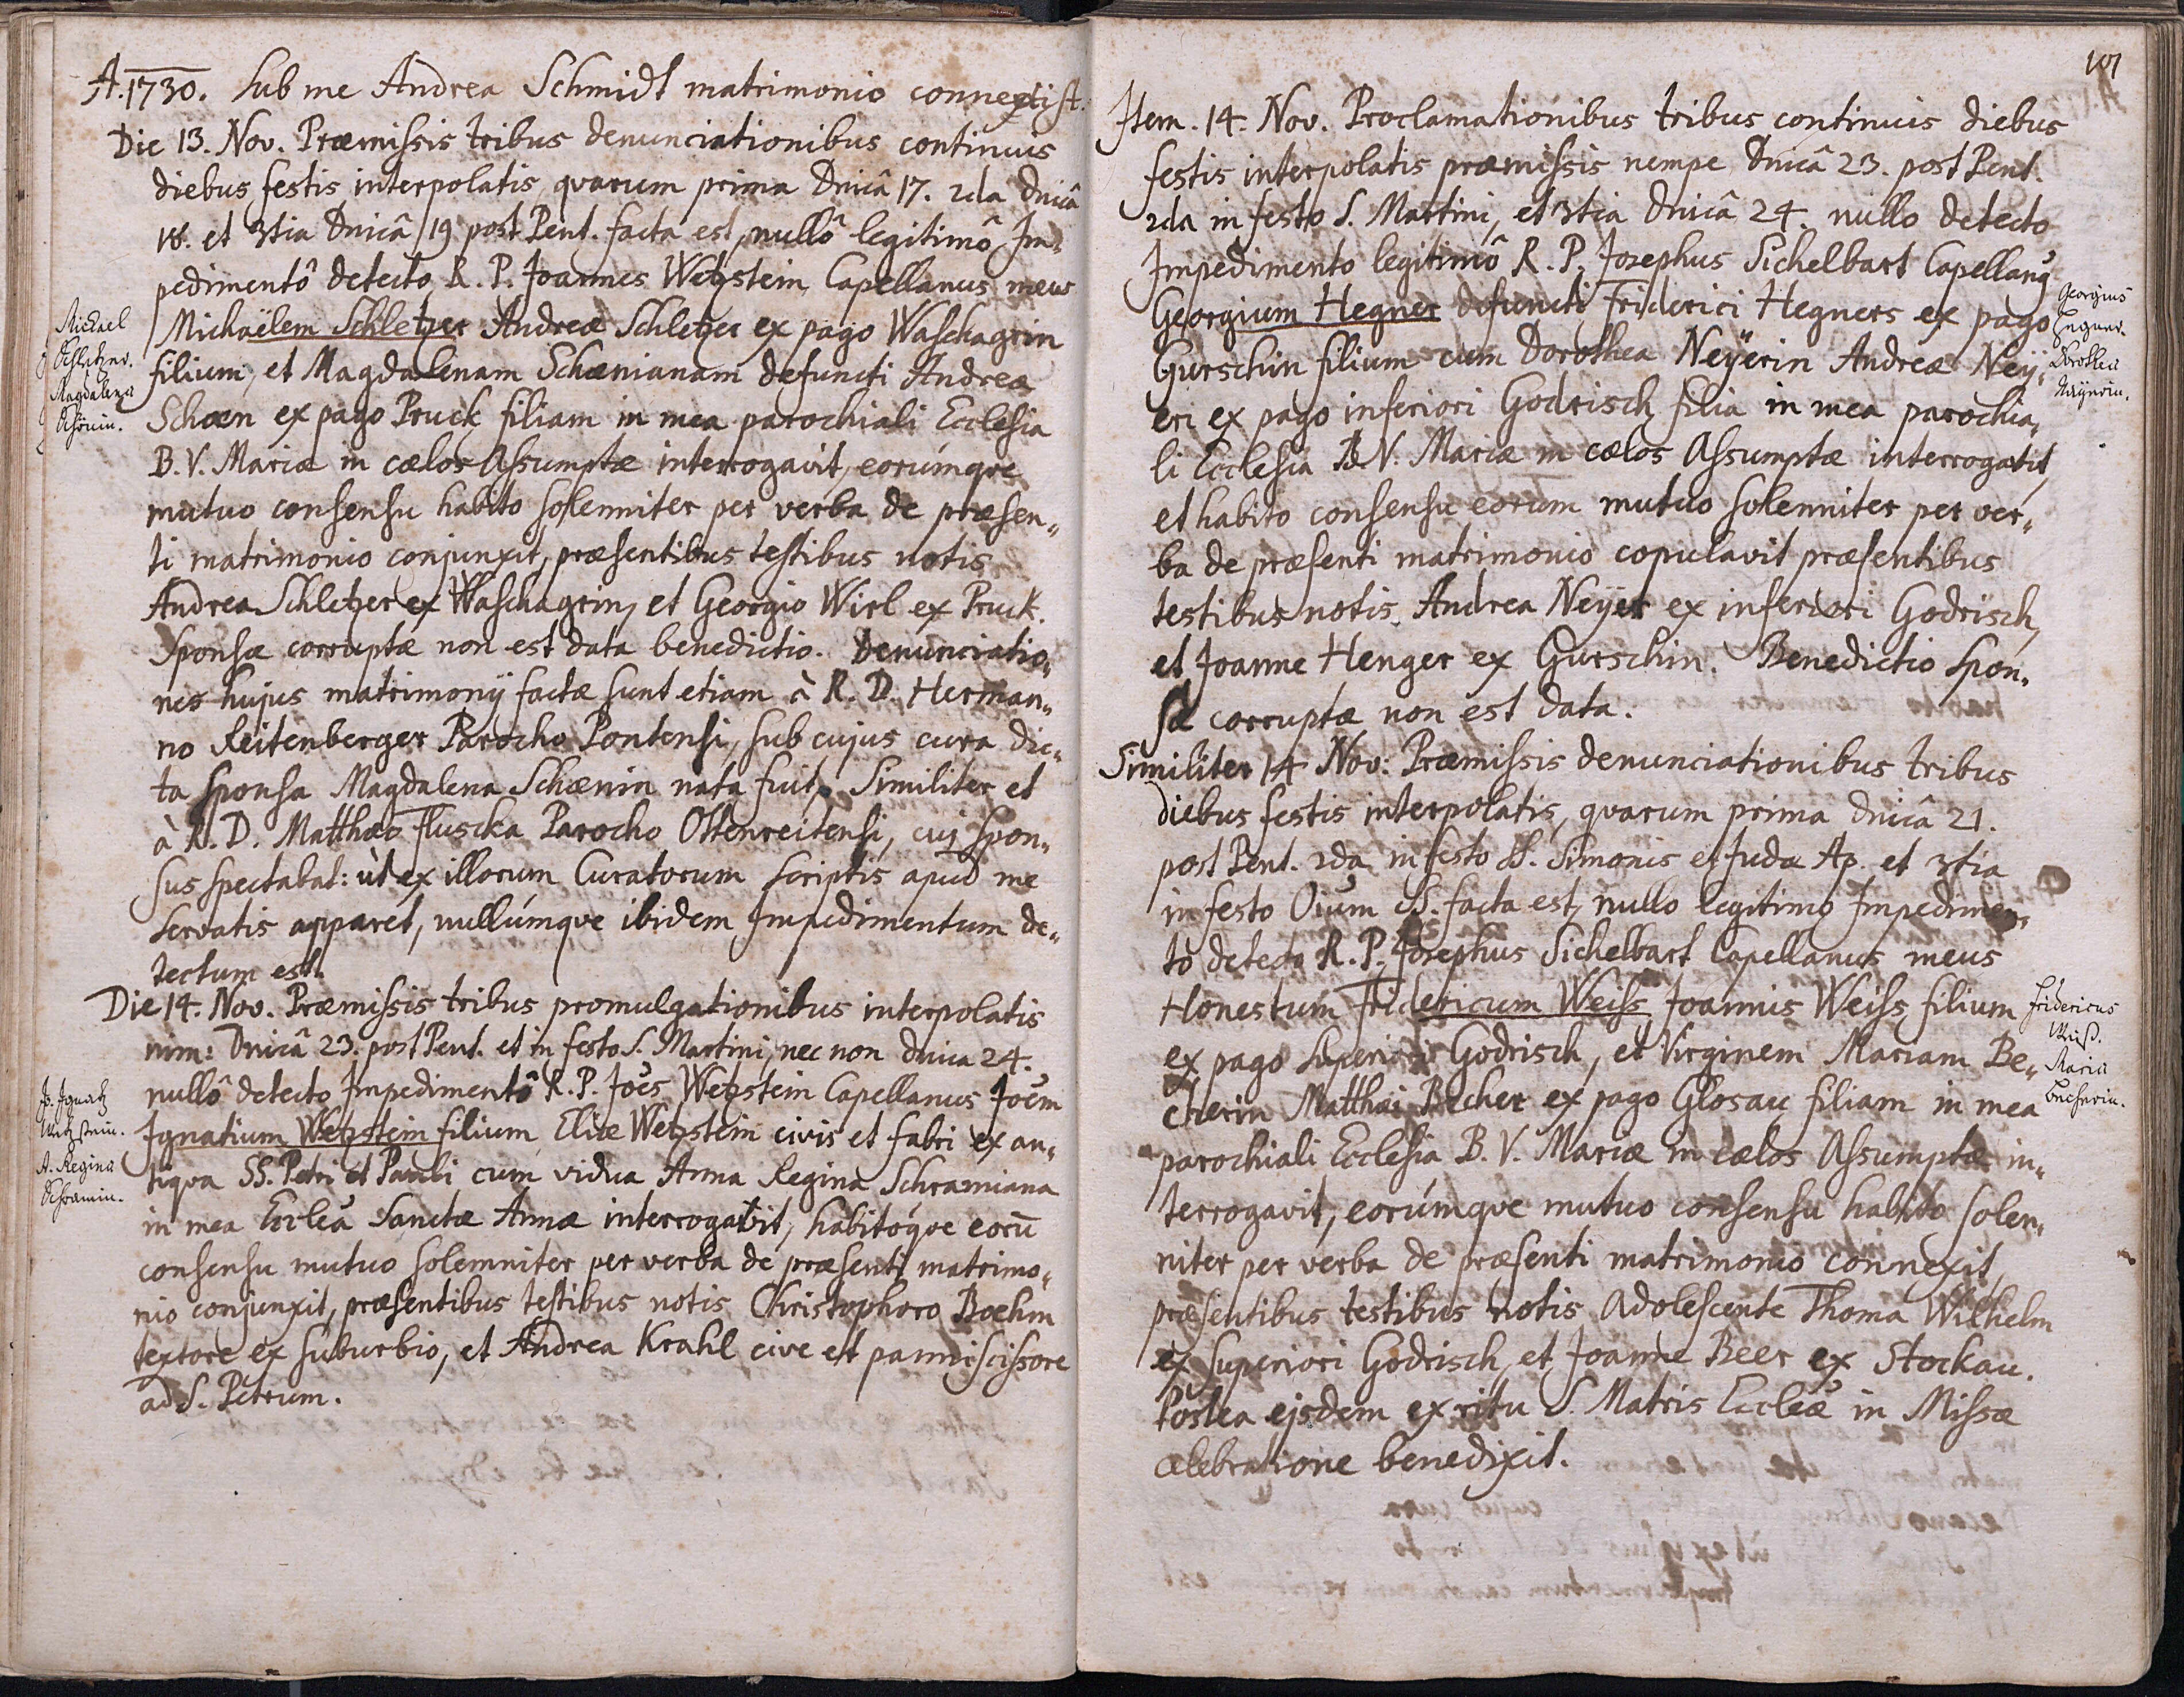 A. 1730. Sub me Andrea Schmidt matrimonio connexi st.
Die 13. Nov. Præmissis tribus denunciationibus continuis
diebus festis interpolatis, qvarum prima Dnicâ 17. 2da Dnicâ
18. et 3tia Dnicâ 19 post Pent. facta est, nullô legitimô Im-
pedimentô detecto R. P. Joannes Wetzstein Capellanus meus
Michaëlem Schletzer Andreæ Schletzer ex pago Waschagrin
filium, et Magdalenam Schænianam defuncti Andreæ
Schæn ex pago Pruck filiam in mea parochiali Ecclesia
B. V. Mariæ in cælos Assumptæ interrogavit, eorúmqve
mutuo consensu habito solenniter per verba de præsen-
ti matrimonio conjunxit, præsentibus testibus notis
Andrea Schletzer ex Waschagrin, et Georgio Wirl ex Pruck.
Sponsæ corruptæ non est data benedictio. Denunciatio-
nes hujus matrimonij factæ sunt etiam à R. D. Herman-
no Reitenberger Parocho Pontensi, sub cujus cura dic-
ta sponsa Magdalena Schænin nata fuit, Similiter et
à R. D. Matthæo Fluscka Parocho Ottenreitensi, cuj spon-
sus spectabat: ùt ex illorum Curatorum scriptis apud me
servatis apparet, nullúmqve ibidem Impedimentum de-
tectum est.
Die 14. Nov. Præmissis tribus promulgationibus interpolatis
nim: Dnicâ 23. post Pent. et in festo S. Martini, nec non dnica 24.
nullô detecto Impedimentô R. P. Joes Wetzstein Capellanus Joem
Ignatium Wetzstein filium Eliæ Wetzstein civis et fabri ex an-
tiqva SS. Petri et Pauli cum vidua Anna Regina Schramiana
in mea Eccleâ Sanctæ Annæ interrogavit, habitóqve eorū
consensu mutuo solemniter per verba de præsenti matrimo-
nio conjunxit, præsentibus testibus notis Christophoro Boehm
textore ex suburbio, et Andrea Krahl cive et panniscissore
ad S. Petrum.
Michael
Schletzer.
Magdalena
Schönin.
Jo. Ignatz
Wetzstein.
A. Regina
Schramin.
101
Item. 14. Nov. Proclamationibus tribus continuis diebus
festis interpolatis præmissis nempe Dnicâ 23. post Pent.
2da in festo S. Martini, et 3tia Dnicâ 24. nullo detecto
Impedimento legitimô R. P. Josephus Sichelbart Capellang
Georgium Hegner defuncti Friderici Hegners ex pago
Gurschin filium cum Dorothea Neÿerin Andreæ Neÿ-
eri ex pago inferiori Godrisch filia in mea parochia-
li Ecclesia B. V. Mariæ in cælos Assumptæ interrogavit,
et habito consensu eorum mutuo solenniter per ver-
ba de præsenti matrimonio copulavit præsentibus
testibus notis Andrea Neÿer ex inferiori Godrisch,
et Joanne Henger ex Gurschin. Benedictio spon-
sæ corruptæ non est data.
Similiter 14 Nov: Præmissis denunciationibus tribus
diebus festis interpolatis, qvarum prima dnicâ 21.
post Pent. 2da in festo SS. Simonis et Judæ Ap. et 3tia
in festo Oium SS. facta est, nullo legitimo Impedimen-
to detecto R. P. Josephus Sichelbart Capellanus meus
Honestum Fridericum Weiss Joannis Weiss filium
ex pago superiori Godrisch, et Virginem Mariam Be-
cherin Matthæi Becher ex pago Glosau filiam in mea
parochiali Ecclesia B. V. Mariæ in cælos Assumptæ in-
terrogavit, eorúmqve mutuo consensu habito solen-
niter per verba de præsenti matrimonio connexit,
præsentibus testibus notis Adolescente Thoma Wilhelm
ex superiori Godrisch, et Joanne Beer ex Stockau.
Postea ejsdem ex ritu S. Matris Eccleæ in Missæ
celebratione benedixit.
Georgius
Hegner.
Dorothea
Nëÿerin.
Fridericus
Weiß.
Maria
Becherin.